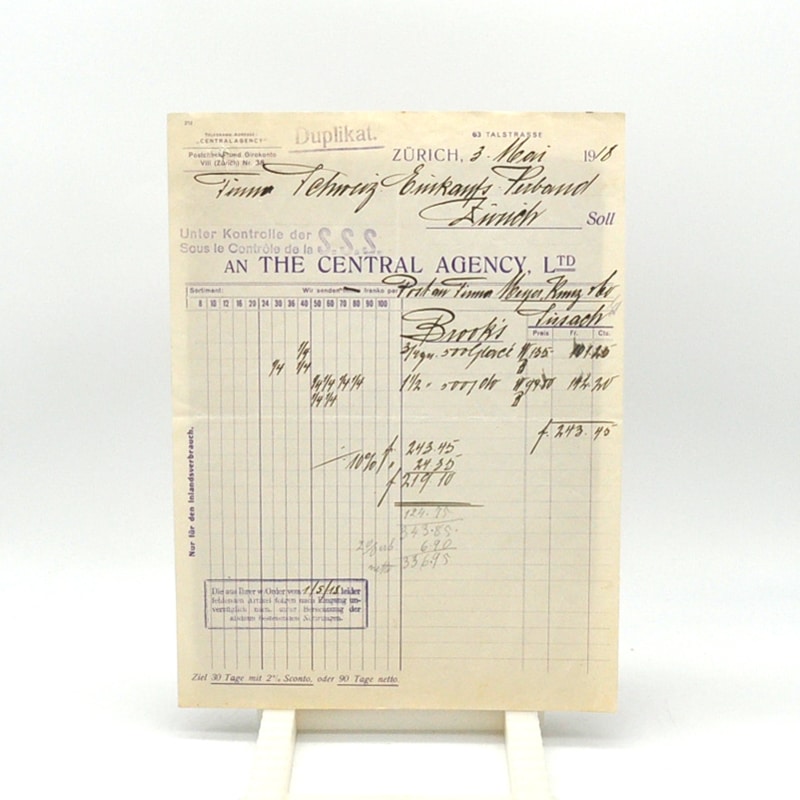 TELEGRAMM-ADRESSE:
„CENTRALAGENCY"
Postcheck- und Girokonto
VIII (Zürich) Nr.
Duplikat.
63 TALSTRASSE
ZÜRICH, 3. Mai 1918
Firma Schweiz. Einkaufs-Verband
Zürich Soll
Unter Kontrolle der
Sous le Contrôle de la S.S.S.
AN THE CENTRAL AGENCY, LTD
Sortiment: Wir senden franko per Post an Firma Meyer, Kunz & Co
Sissach
8 10 12 16 20 24 30 36 40 50 60 70 80 90 100
Brook's
Preis Fr. Cts.
500 Glacé 135 101 25
1 1/2 500 do 142 20
f. 243.45
f 243.45
10% " 24 35
f 219 10
124.75
343.85
6.90
netto 336.95
Nur für den Inlandsverbrauch.
Die aus Ihrer w. Order vom 1/5/18 leider
fehlenden Artikel folgen nach Eingang un-
verzüglich nach, unter Berechnung der
alsdann bestehenden
Ziel 30 Tage mit 2% Sconto, oder 90 Tage netto.